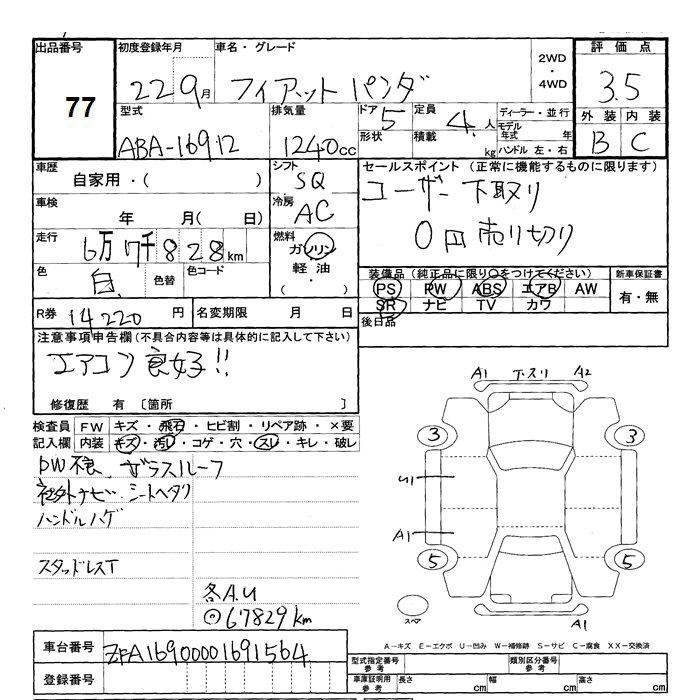 出品番号 初度登録年月 車名・グレード 2WD ・ 4WD 評価点
77 22 9月 フィアット パンダ 3.5
型式 排気量 ドア 定員 ディーラー・並行 外装 内装
ABA-16912 1240cc 5 4人 モデル年式 年 B C
形状 積載 kg ハンドル 左・右
車歴 シフト セールスポイント (正常に機能するものに限ります)
自家用・( ) SQ ユーザー下取り
車検 冷房
年 月( 日) AC 0円売り切り
走行 燃料
6万7千828km ガソリン
色 色替 色コード 軽油 装備品 (純正品に限り○をつけてください) 新車保証書
白 ( ・ ) PS PW ABS エアB AW 有・無
SR ナビ TV カワ
R券 14220円 名変期限 月 日 後日品
注意事項申告欄(不具合内容等は具体的に記入して下さい)
エアコン良好!!
修復歴 有 [箇所 ]
検査員 FW キズ・飛石・ヒビ割・リペア跡・×要
記入欄 内装 キズ・汚れ・コゲ・穴・スレ・キレ・破レ
PW不良、ガラスルーフ
社外ナビ シートヘタリ
ハンドルハゲ
スタッドレスT
各A.U
◎67829km
A1 下スリ A2
3 3
U1
A1
5 5
スペア A1
A-キズ E-エクボ U-凹み W-補修跡 S-サビ C-腐食 XX-交換済
車台番号 ZFA16900001691564
登録番号
型式指定番号 参考 類別区分番号 参考
車庫証明用 参考 長さ cm 幅 cm 高さ cm